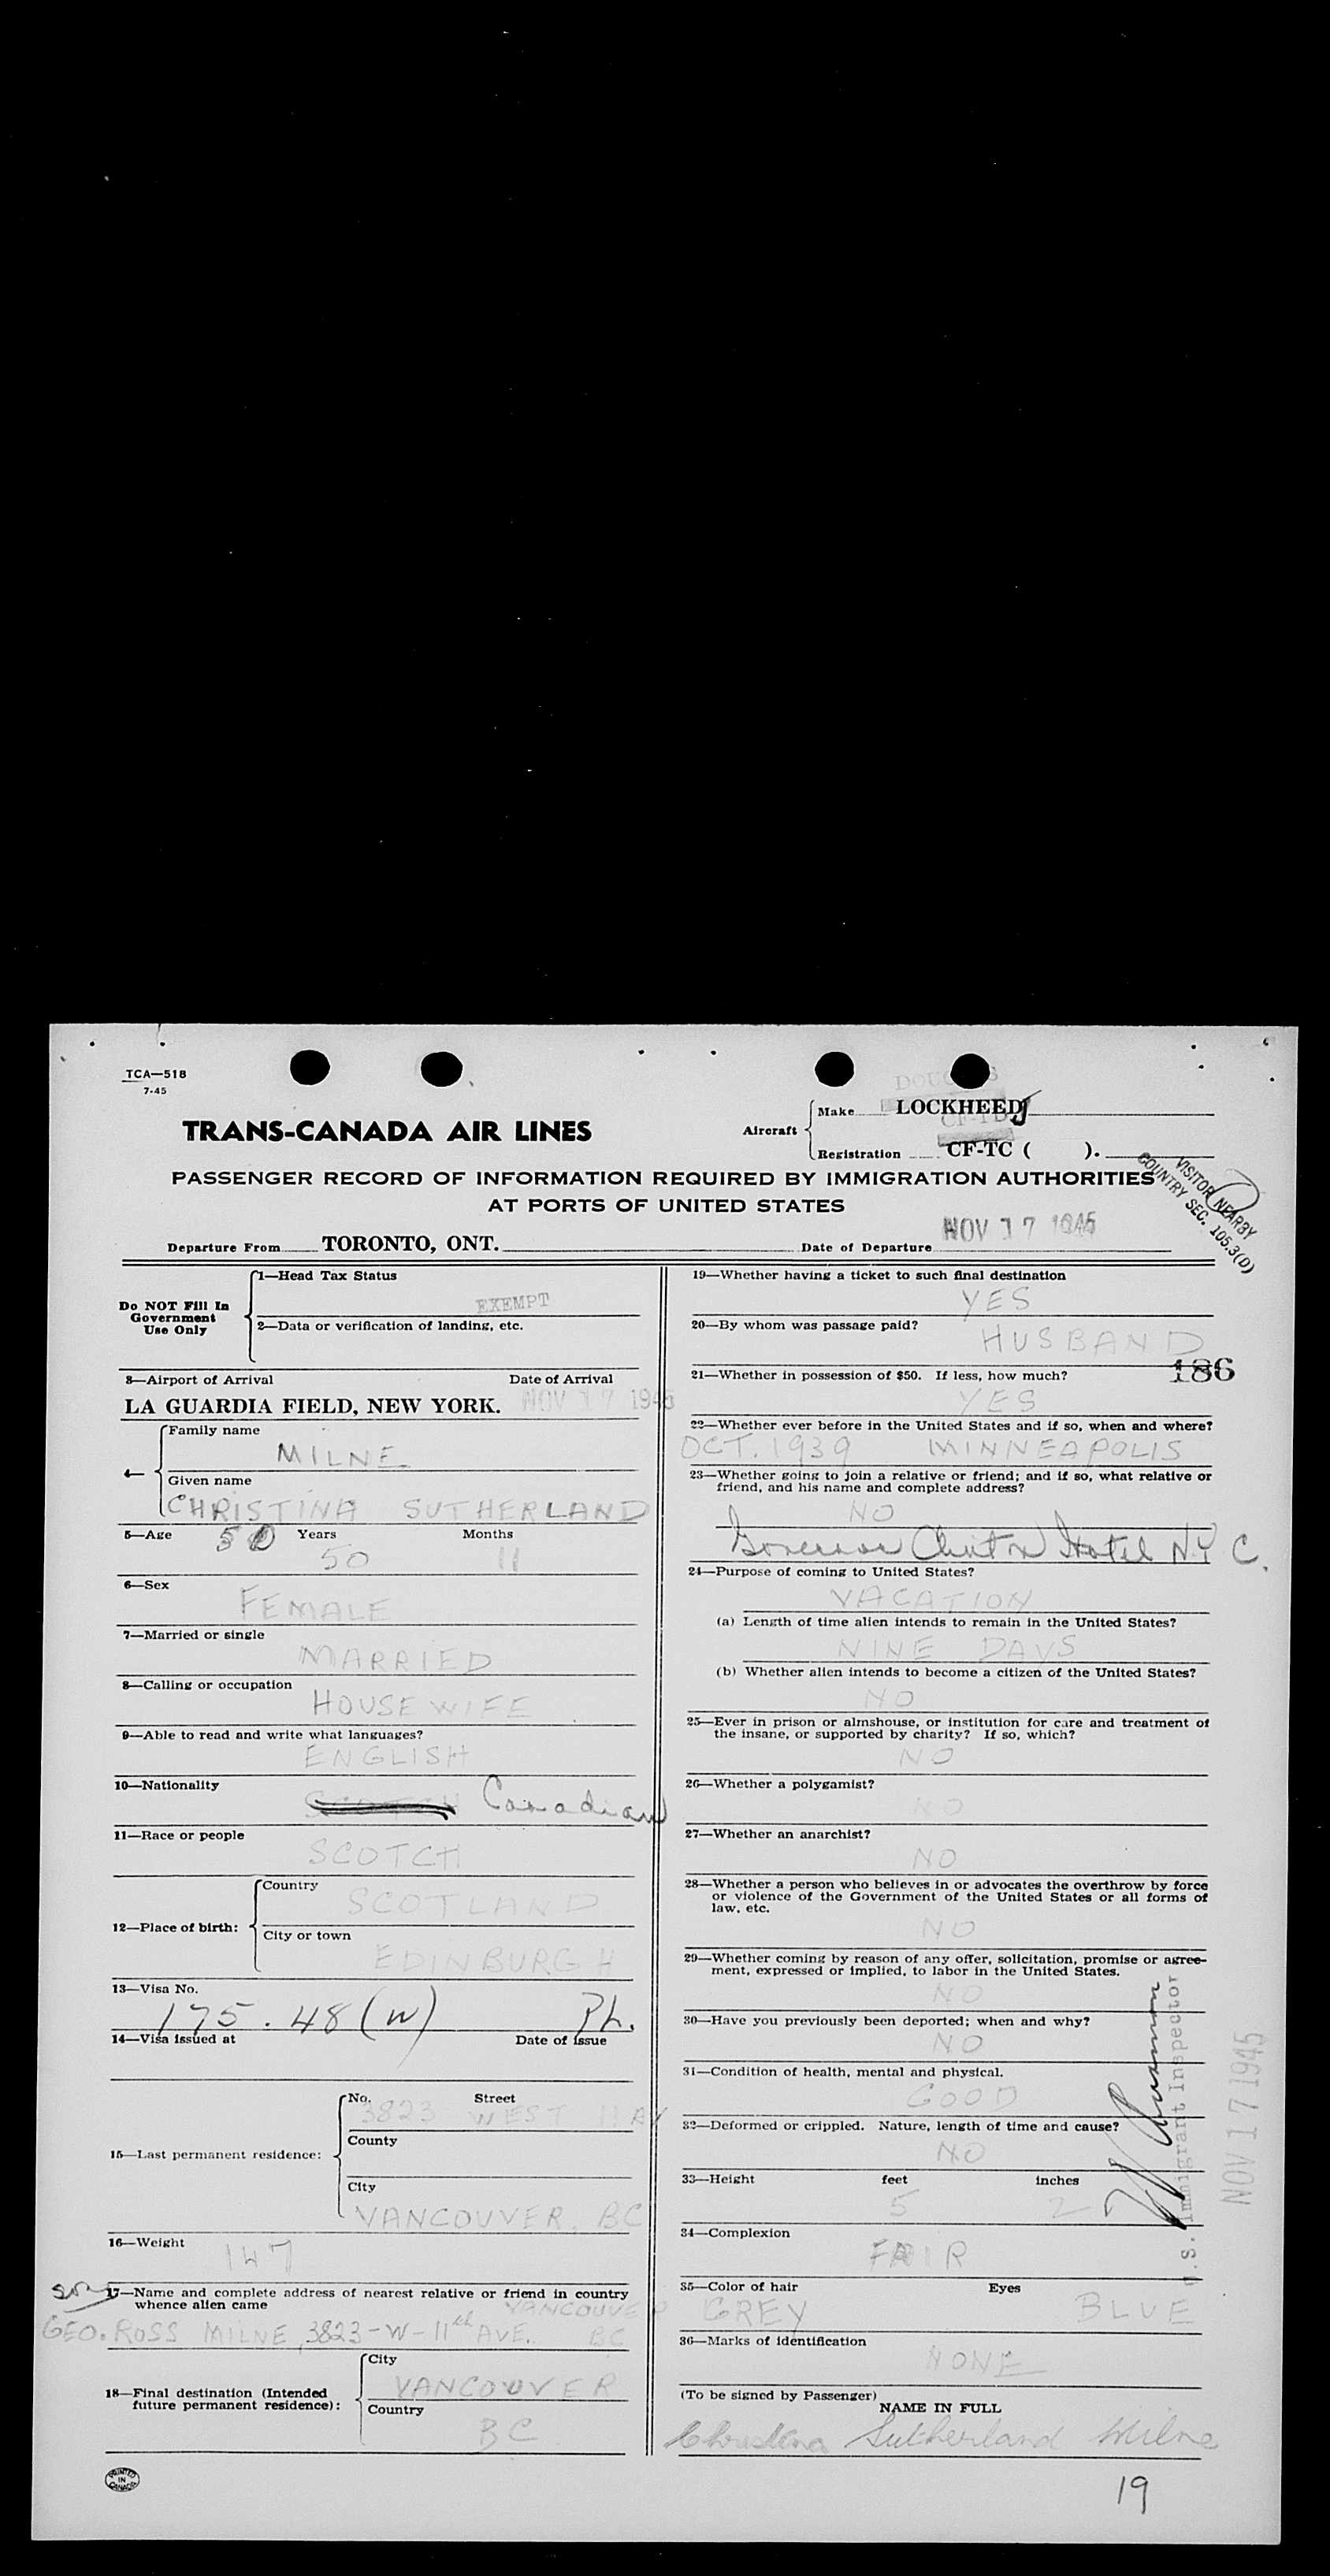 TCA—518
7-45
DOUGLAS
Make LOCKHEED
CF-TD
Aircraft
TRANS-CANADA AIR LINES
Registration CF-TC ( ).
PASSENGER RECORD OF INFORMATION REQUIRED BY IMMIGRATION AUTHORITIES
AT PORTS OF UNITED STATES
VISITOR NEARBY
COUNTRY SEC. 105.3(D)
Departure From TORONTO, ONT. Date of Departure NOV 17 1945
Do NOT Fill In
Government
Use Only
1—Head Tax Status
EXEMPT
2—Data or verification of landing, etc.
3—Airport of Arrival Date of Arrival
LA GUARDIA FIELD, NEW YORK. NOV 17 1945
4—
Family name
MILNE
Given name
CHRISTINA SUTHERLAND
5—Age 50 Years Months
50 11
6—Sex
FEMALE
7—Married or single
MARRIED
8—Calling or occupation
HOUSEWIFE
9—Able to read and write what languages?
ENGLISH
10—Nationality
SCOTCH Canadian
11—Race or people
SCOTCH
12—Place of birth:
Country
SCOTLAND
City or town
EDINBURGH
13—Visa No.
175.48(W) Ph.
14—Visa issued at Date of issue
15—Last permanent residence:
No. Street
3823 WEST 11 AV
County
City
VANCOUVER. BC
16—Weight
147
son
17—Name and complete address of nearest relative or friend in country
whence alien came
VANCOUVER
GEO. ROSS MILNE, 3823-W-11th AVE. BC
18—Final destination (Intended
future permanent residence):
City
VANCOUVER
Country
BC
PRINTED
IN
CANADA
19—Whether having a ticket to such final destination
YES
20—By whom was passage paid?
HUSBAND
186
21—Whether in possession of $50. If less, how much?
YES
22—Whether ever before in the United States and if so, when and where?
OCT. 1939 MINNEAPOLIS
23—Whether going to join a relative or friend; and if so, what relative or
friend, and his name and complete address?
NO
Governor Clinton Hotel N.Y C.
24—Purpose of coming to United States?
VACATION
(a) Length of time alien intends to remain in the United States?
NINE DAYS
(b) Whether alien intends to become a citizen of the United States?
NO
25—Ever in prison or almshouse, or institution for care and treatment of
the insane, or supported by charity? If so, which?
NO
26—Whether a polygamist?
NO
27—Whether an anarchist?
NO
28—Whether a person who believes in or advocates the overthrow by force
or violence of the Government of the United States or all forms of
law, etc.
NO
29—Whether coming by reason of any offer, solicitation, promise or agree-
ment, expressed or implied, to labor in the United States.
NO
30—Have you previously been deported; when and why?
NO
31—Condition of health, mental and physical.
GOOD
32—Deformed or crippled. Nature, length of time and cause?
NO
33—Height feet inches
5 2
34—Complexion
FAIR
35—Color of hair Eyes
GREY BLUE
36—Marks of identification
NONE
U.S. Immigrant Inspector
NOV 17 1945
(To be signed by Passenger)
NAME IN FULL
Christina Sutherland Milne
19